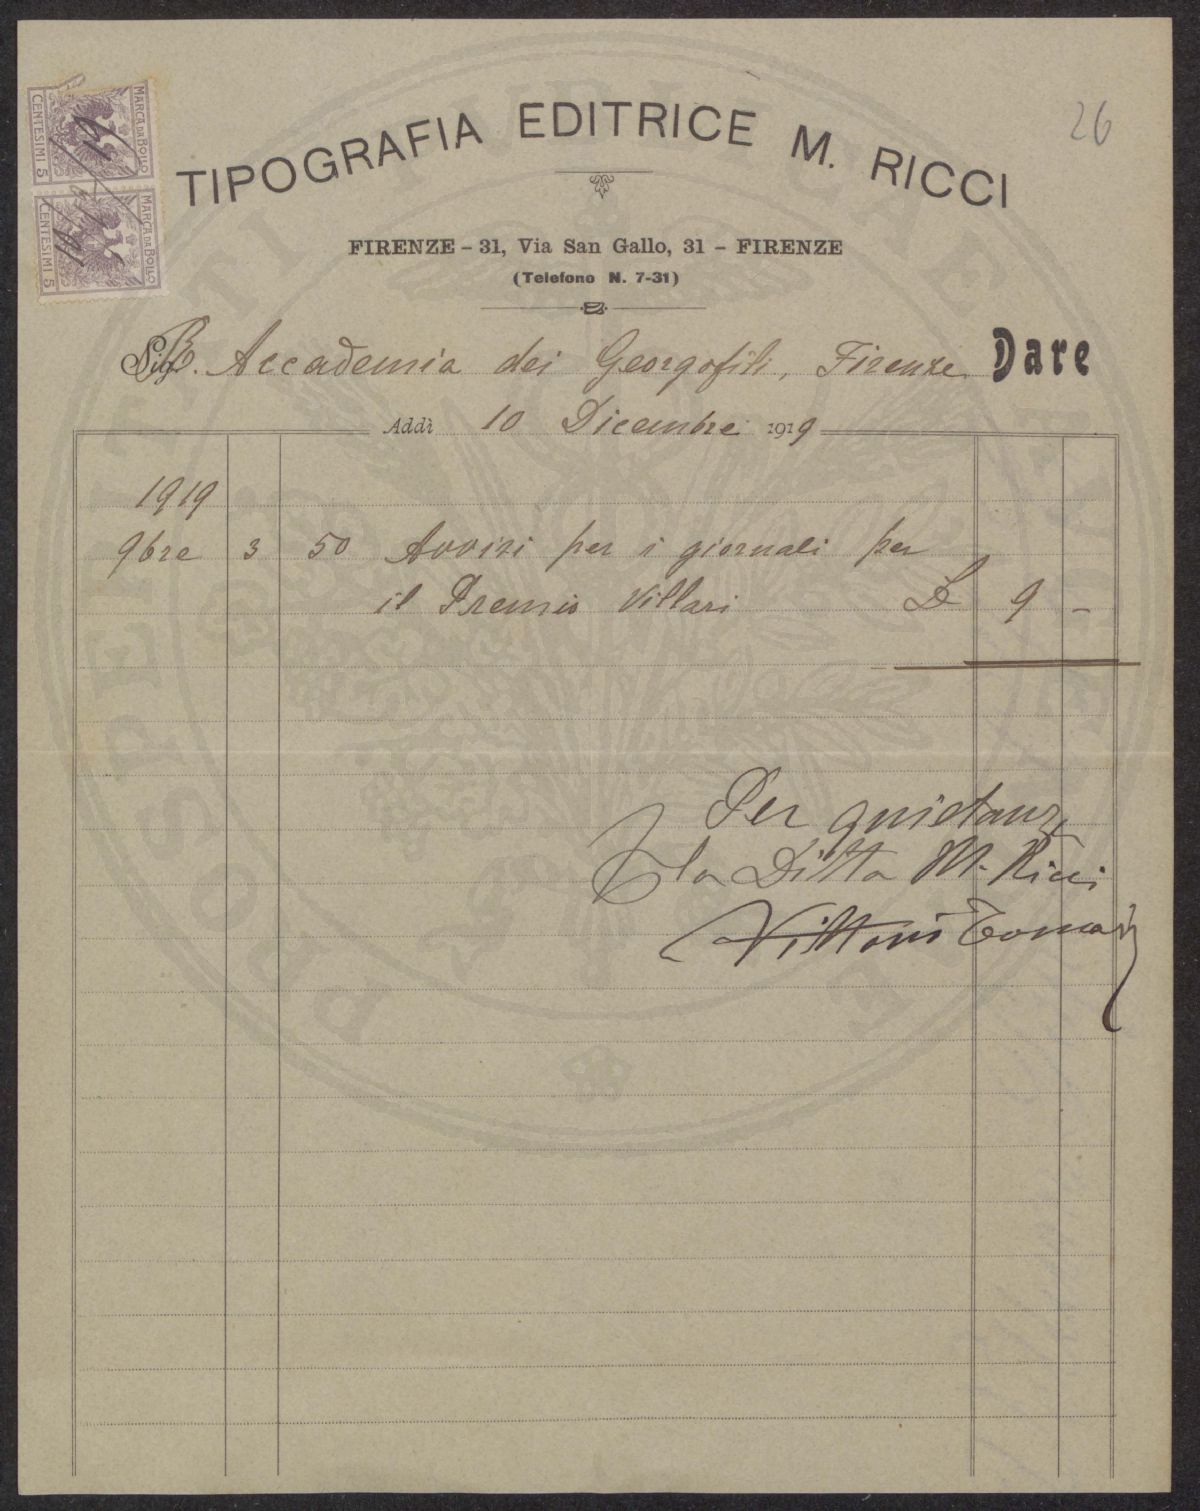 26
MARCA DA BOLLO
CENTESIMI 5
MARCA DA BOLLO
CENTESIMI 5
TIPOGRAFIA EDITRICE M. RICCI
FIRENZE - 31, Via San Gallo, 31 - FIRENZE
(Telefono N. 7-31)
R. Accademia dei Georgofili, Firenze Dare
Addì 10 Dicembre 1919
1919
9bre 3 50 Avvisi per i giornali per
il Premio Villari L 9 -
Per quietanza
la Ditta M. Ricci